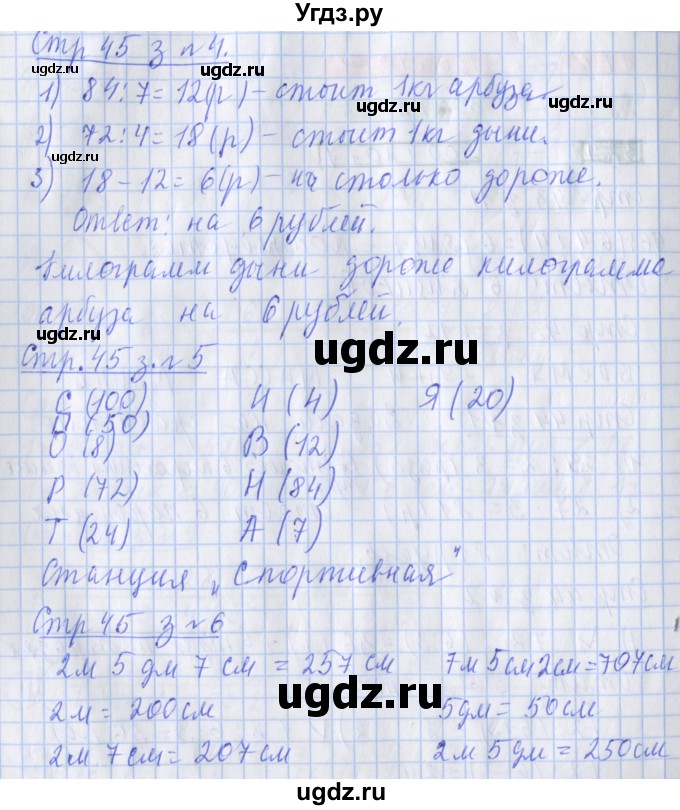 Угдз.ру
Стр 45 з №4.
1) 84:7=12(р) – стоит 1кг арбуза.
2) 72:4=18(р) – стоит 1кг дыни.
3) 18-12=6(р) – на столько дороже.
Ответ: на 6 рублей.
Килограмм дыни дороже килограмма
арбуза на 6 рублей.
Стр.45 з.№5
С (100) И (4) Я (20)
П (50)
О (8) В (12)
Р (72) Н (84)
Т (24) А (7)
Станция „Спортивная"
Стр 45 з №6
2м 5 дм 7 см = 257 см 7м 5см 2см=707см
2м = 200см 5дм = 50см
2м 7см = 207см 2м 5дм = 250см
ugdz.ru
ugdz.ru
ugdz.ru
ugdz.ru
ugdz.ru
ugdz.ru
ugdz.ru
ugdz.ru
ugdz.ru
ugdz.ru
ugdz.ru
ugdz.ru